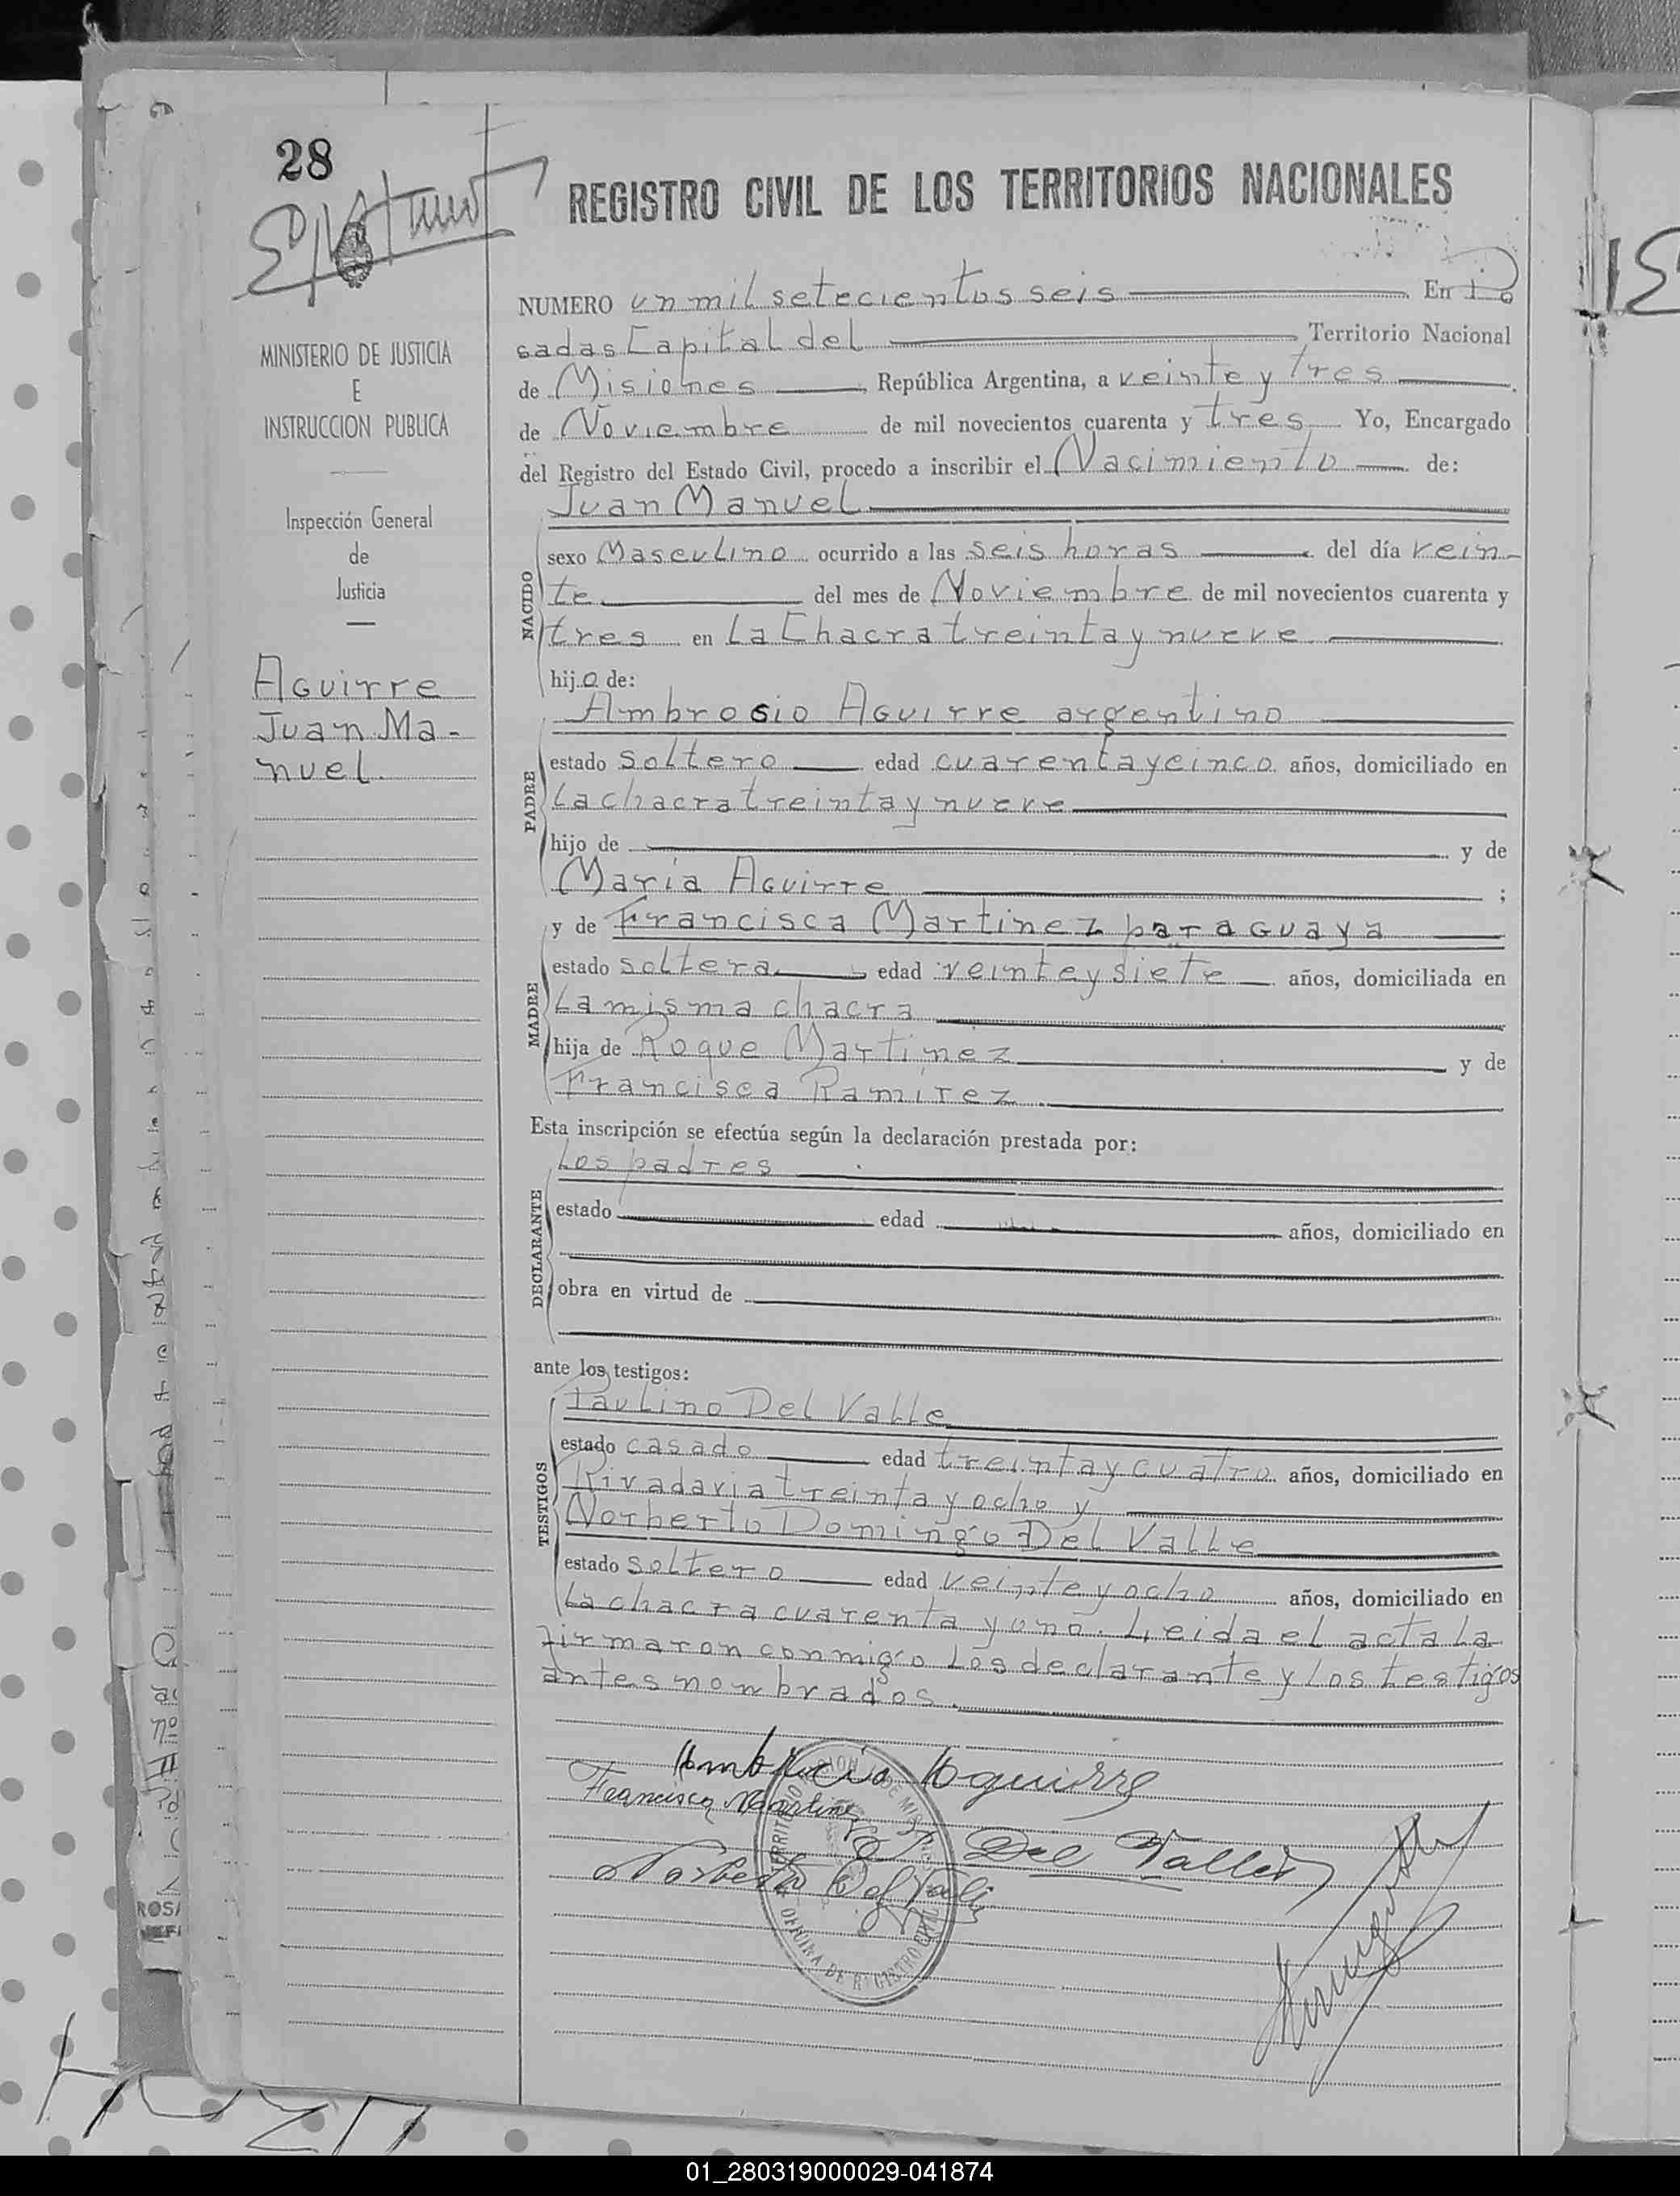 28
REGISTRO CIVIL DE LOS TERRITORIOS NACIONALES
MINISTERIO DE JUSTICIA
E
INSTRUCCION PUBLICA
Inspección General
de
Justicia
Aguirre
Juan Ma-
nuel.
NUMERO un mil setecientos seis En Po
sadas Capital del Territorio Nacional
de Misiones República Argentina, a veinte y tres
de Noviembre de mil novecientos cuarenta y tres Yo, Encargado
del Registro del Estado Civil, procedo a inscribir el Nacimiento de:
Juan Manuel
NACIDO
sexo Masculino ocurrido a las seis horas del día vein-
te del mes de Noviembre de mil novecientos cuarenta y
tres en La Chacra treinta y nueve
hijo de:
PADRE
Ambrosio Aguirre argentino
estado soltero edad cuarenta y cinco años, domiciliado en
La chacra treinta y nueve
hijo de y de
María Aguirre ;
MADRE
y de Francisca Martinez paraguaya
estado soltera edad veinte y siete años, domiciliada en
La misma chacra
hija de Roque Martinez y de
Francisca Ramírez
Esta inscripción se efectúa según la declaración prestada por:
DECLARANTE
Los padres
estado edad años, domiciliado en
obra en virtud de
ante los testigos:
TESTIGOS
Paulino Del Valle
estado casado edad treinta y cuatro años, domiciliado en
Rivadavia treinta y ocho y
Norberto Domingo Del Valle
estado soltero edad veinte y ocho años, domiciliado en
La chacra cuarenta y uno. Leida el acta la
firmaron conmigo los declarante y los testigos
antes nombrados.
Ambrocio Aguirre
Francisca Martinez
P. Del Valle
Norberto Del Valle
OFICINA DE REGISTRO CIVIL
01_280319000029-041874